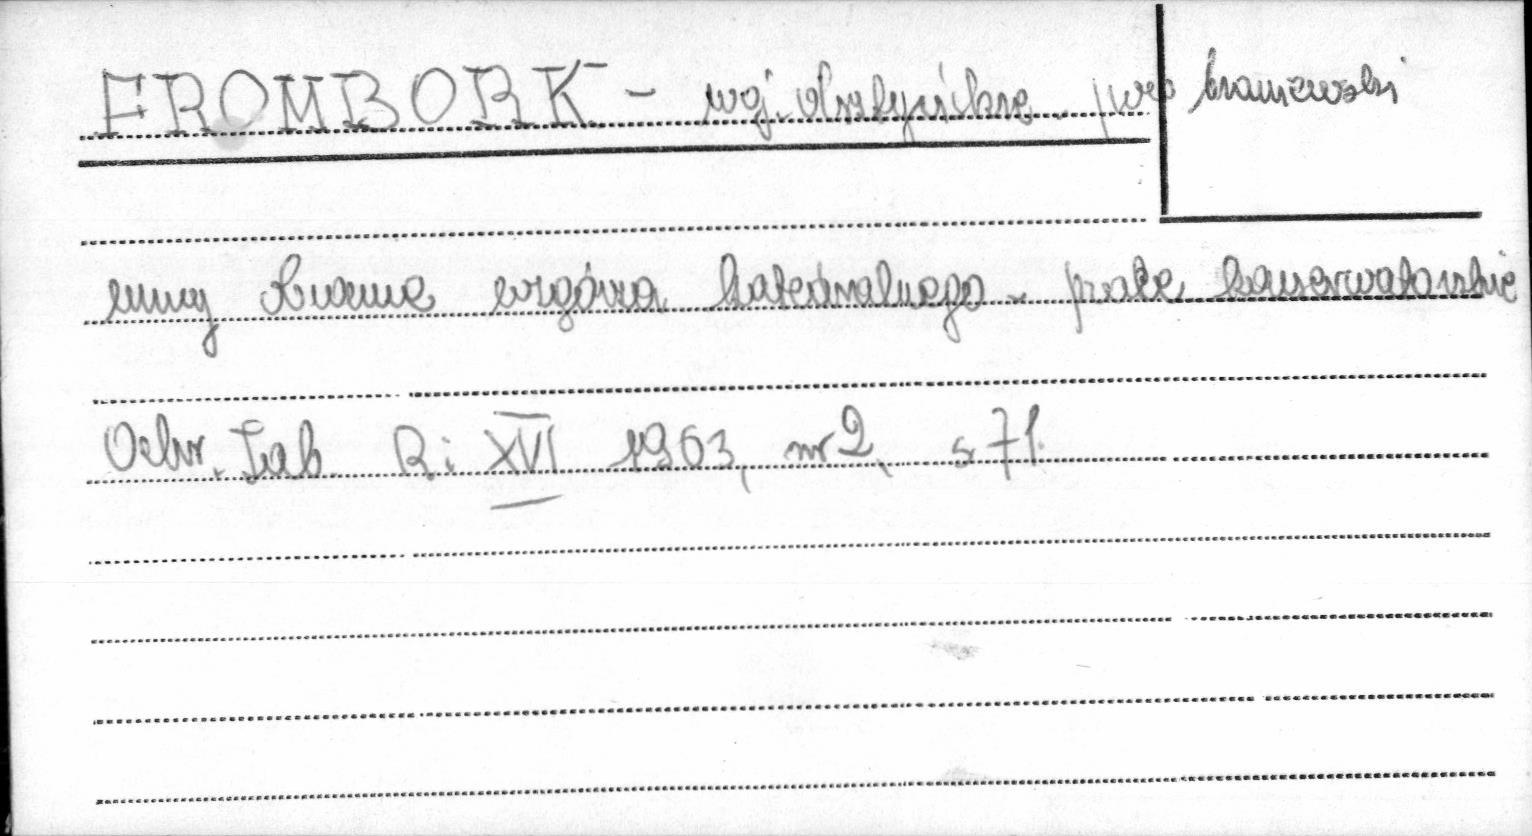 FROMBORK - woj. olsztyńskie pow braniewski
mury obronne wzgórza katedralnego - prace konserwatorskie
Ochr. Zab. R: XVI 1963, nr 2, s 71.